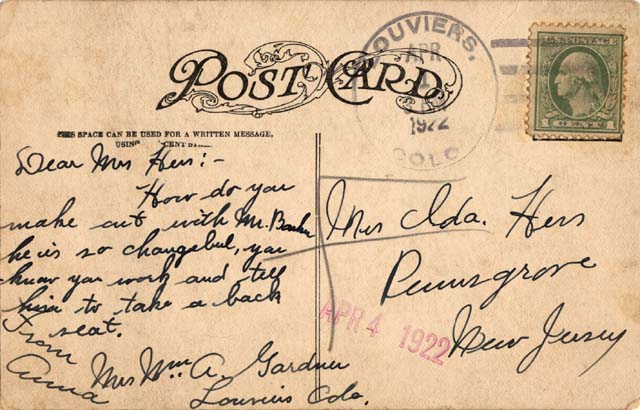 POST CARD
LOUVIERS,
APR
1922
COLO
U.S. POSTAGE
1 CENT
THIS SPACE CAN BE USED FOR A WRITTEN MESSAGE,
USING CENT
Dear Mrs Hers:-
How do you
make out with Mr. Banker
he is so changebul, you
know you work and tell
him to take a back
seat.
From
Anna
Mrs Wm. A. Gardner
Louviers Colo.
Mrs Ida. Hers
Pennsgrove
New Jersey
APR 4 1922